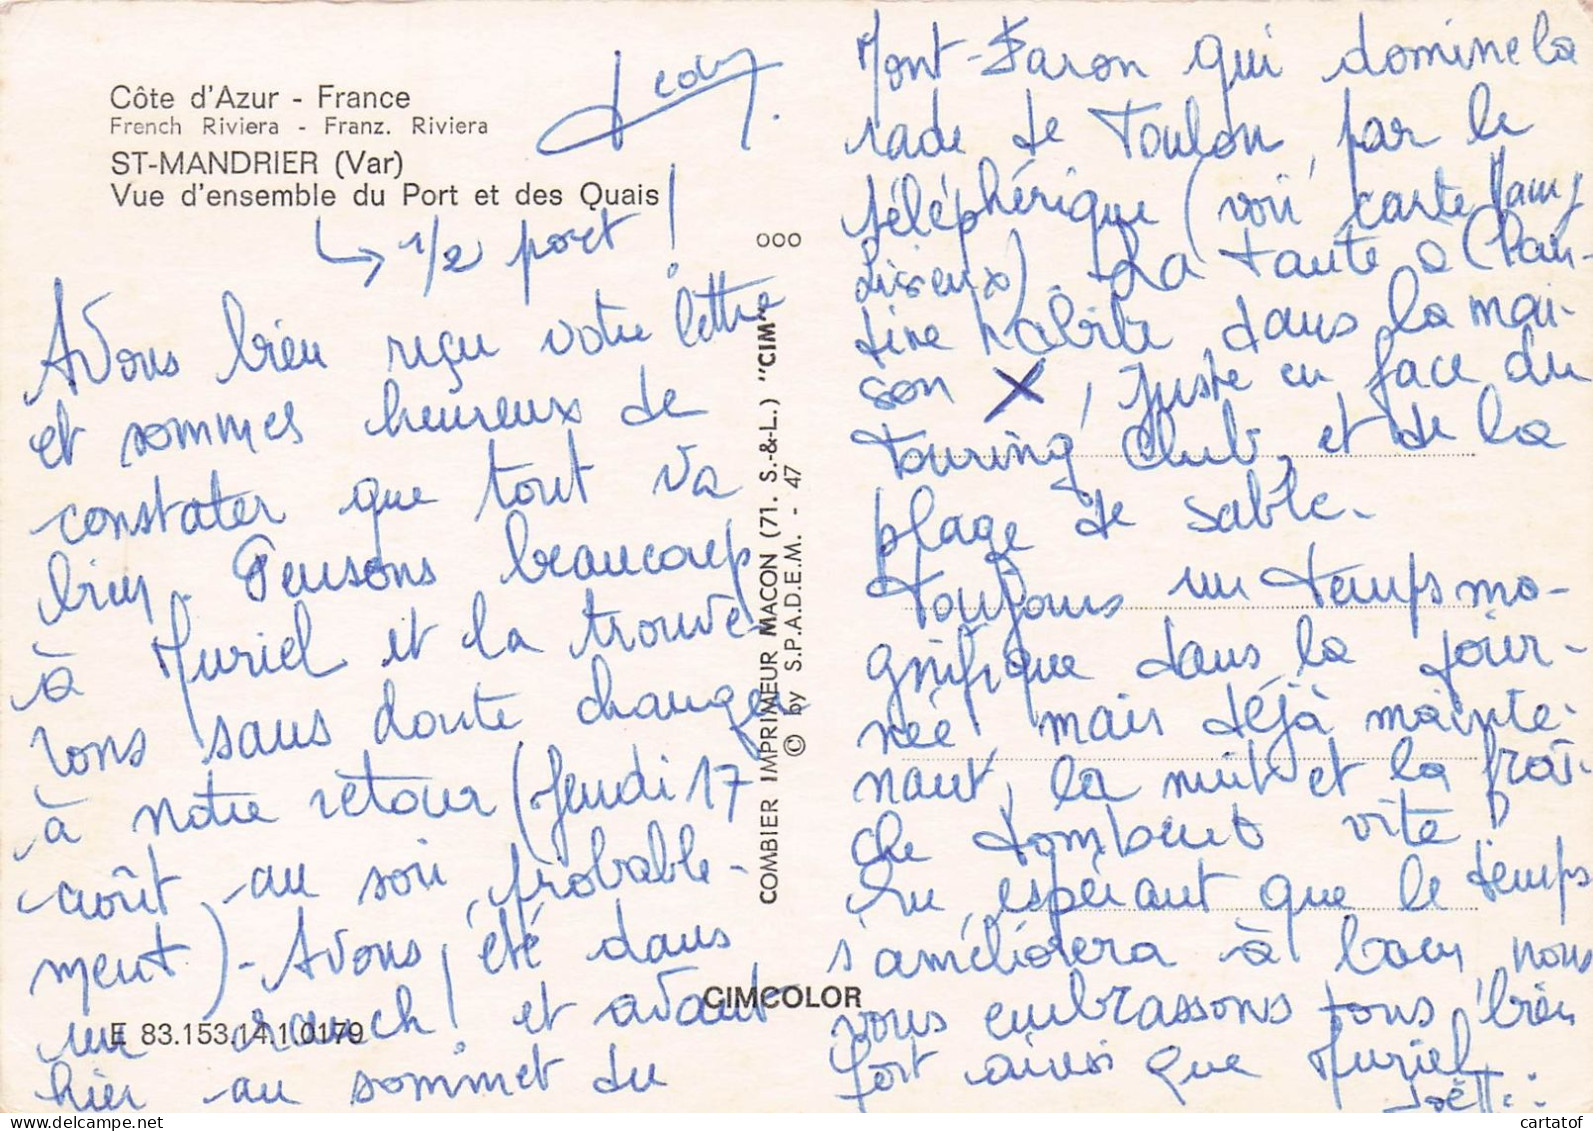 Côte d'Azur - France
French Riviera - Franz. Riviera
ST-MANDRIER (Var)
Vue d'ensemble du Port et des Quais
↳ 1/2 port !
Avons bien reçu votre lettre
et sommes heureux de
constater que tout va
bien. Pensons beaucoup
à Muriel et la trouve-
rons sans doute changée
à notre retour (Jeudi 17
août au soir, probable-
ment) - Avons été dans
un ranch ! et avant
hier au sommet du
E 83.153.14.1.0179
ooo
COMBIER IMPRIMEUR MACON (71. S.-&-L.) "CIM"
© by S.P.A.D.E.M. - 47
CIMCOLOR
Mont-Faron qui domine la
rade de Toulon, par le
téléphérique (voir carte Mamy
Lisieux). La tante à Chan-
tine habite dans la mai-
son X, juste en face du
Touring Club, et de la
plage de sable.
Toujours un temps ma-
gnifique dans la jour-
née, mais déjà mainte-
nant, la nuit et la fraî-
che tombent vite !
En espérant que le temps
s'améliorera à Caen, nous
vous embrassons tous bien
fort ainsi que Muriel
Joëlle
www.cartatof